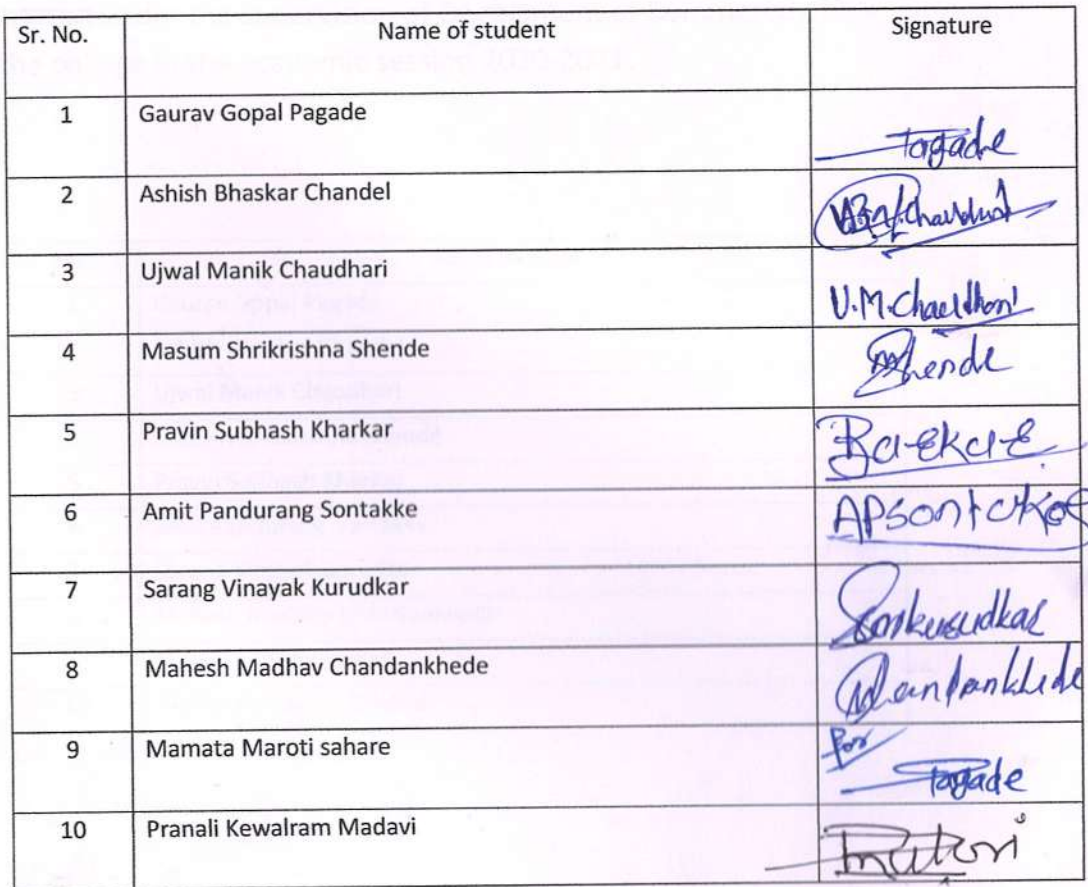 Sr. No. Name of student Signature
1 Gaurav Gopal Pagade Pagade
2 Ashish Bhaskar Chandel
3 Ujwal Manik Chaudhari U.M.Chaudhari
4 Masum Shrikrishna Shende MShende
5 Pravin Subhash Kharkar
6 Amit Pandurang Sontakke APSontakke
7 Sarang Vinayak Kurudkar
8 Mahesh Madhav Chandankhede
9 Mamata Maroti sahare For Pagade
10 Pranali Kewalram Madavi